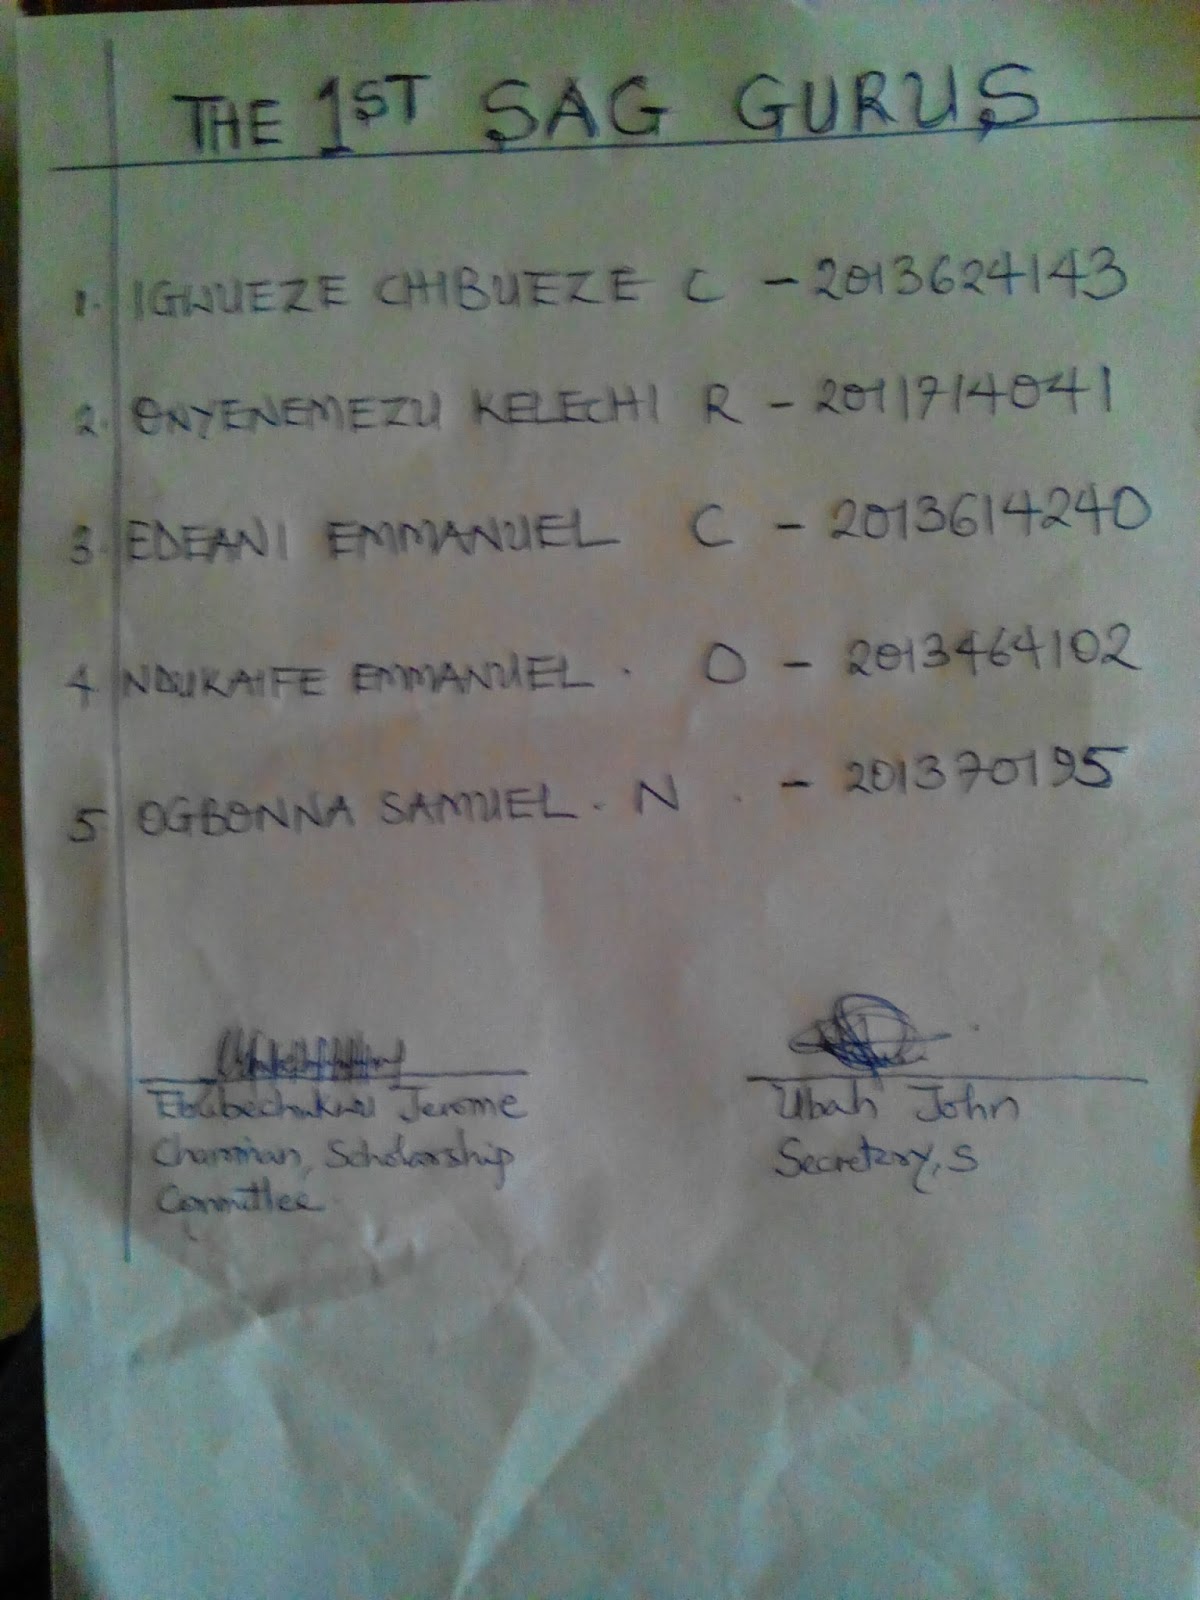 THE 1ST SAG GURUS
1. IGWUEZE CHIBUEZE C - 2013624143
2. ONYENEMEZU KELECHI R - 2011714041
3. EDEANI EMMANUEL C - 2013614240
4. NDUKAIFE EMMANUEL. O - 2013464102
5 OGBONNA SAMUEL. N. - 201370195
Ebubechukwu Jerome
Chairman, Scholarship
Committee
Ubah John
Secretary, S